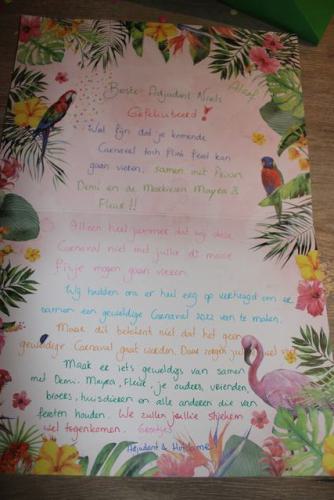 Alaaf
Beste Adjudant Niels
Gefeliciteerd!
Wat fijn dat je komende
Carnaval toch flink feest kan
gaan vieren, samen met Prins
Demi en de Markiezin Mayra &
Fleur!!
Alleen heel jammer dat wij deze
Carnaval niet met jullie dit mooie
Fisje mogen gaan vieren.
Wij hadden ons er heel erg op verheugd om er
samen een geweldige Carnaval 2022 van te maken.
Maar dit betekent niet dat het geen
geweldige Carnaval gaat worden. Daar zorgen jullie wel
Maak er iets geweldigs van samen
met Demi, Mayra, Fleur, je ouders, vrienden,
broers, huisdieren en alle anderen die van
feesten houden. We zullen jullie stiekem
wel tegenkomen. Groetjes
Adjudant & Hofdame